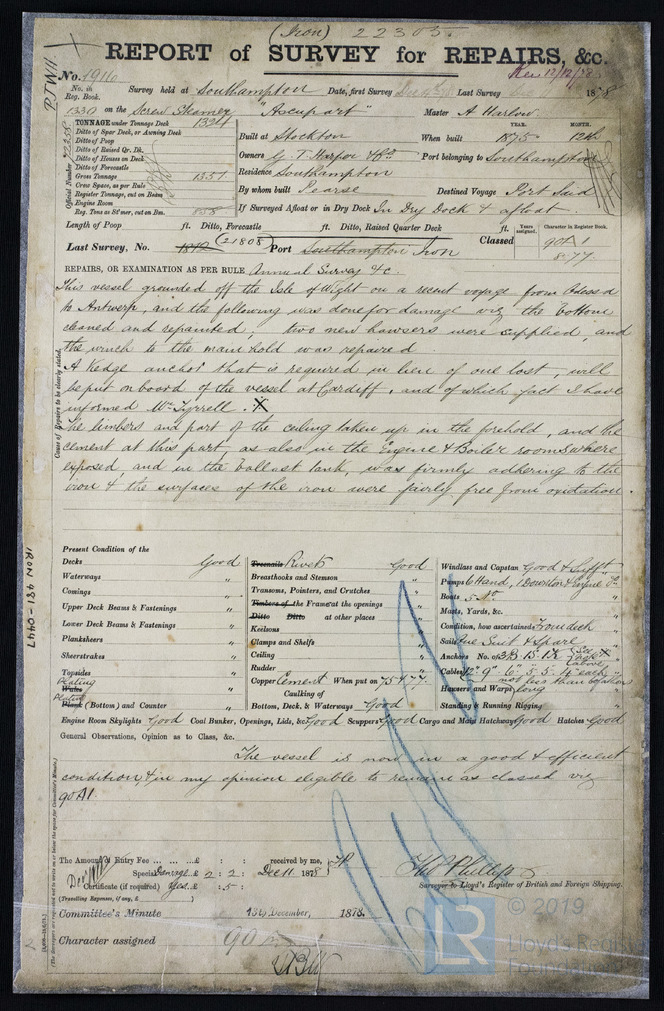 (Iron) 22305.
REPORT of SURVEY for REPAIRS, &c.
No. 1916 Rec 12/12/78
No. in Reg. Book. Survey held at Southampton Date, first Survey Last Survey 1878
1330 on the Screw Steamer "Ascupart" Master A Harlow
TONNAGE under Tonnage Deck 1324
Ditto of Spar Deck, or Awning Deck
Ditto of Poop
Ditto of Raised Qr. Dk.
Ditto of Houses on Deck
Ditto of Forecastle
Gross Tonnage 1357
Crew Space, as per Rule
Register Tonnage, cut on Beam
Engine Room
Reg. Tons as St'mer, cut on Bm. 858
Official Number
YEAR. MONTH.
Built at Stockton When built 1875 12th
Owners G. T. Harper & Co Port belonging to Southampton
Residence Southampton
By whom built Pearse Destined Voyage Port Said
If Surveyed Afloat or in Dry Dock In Dry Dock & afloat.
Length of Poop ft. Ditto, Forecastle ft. Ditto, Raised Quarter Deck ft.
Years assigned. Character in Register Book.
Last Survey, No. 1819 (21808) Port Southampton Iron Classed 90A1
8.77
REPAIRS, OR EXAMINATION AS PER RULE Annual Survey &c.
This vessel grounded off the Isle of Wight on a recent voyage from Odessa
to Antwerp, and the following was done for damage viz the bottom
cleaned and repainted, two new hawsers were supplied, and
the winch to the main hold was repaired
A Kedge anchor that is required in lieu of one lost, will
be put on board of the vessel at Cardiff, and of which fact I have
informed Mr Tyrrell. X
The limbers and part of the ceiling taken up in the forehold, and the
cement at this part, as also in the Engine & Boiler rooms where
exposed, and in the ballast tank, was firmly adhering to the
iron & the surfaces of the iron were fairly free from oxidation.
Cause of Repairs to be clearly stated.
IRON 481-0447
Present Condition of the
Decks Good
Waterways "
Comings "
Upper Deck Beams & Fastenings "
Lower Deck Beams & Fastenings "
Planksheers "
Sheerstrakes "
Topsides "
Plating
Wales "
Plating
Plank (Bottom) and Counter "
Treenails Rivets Good
Breasthooks and Stemson "
Transoms, Pointers, and Crutches "
Timbers of the Frame at the openings "
Ditto Ditto at other places "
Keelsons "
Clamps and Shelfs "
Ceiling "
Rudder "
Copper Cement When put on 75 & 77
Caulking of
Bottom, Deck, & Waterways Good
Windlass and Capstan Good & Suff't
Pumps 6 Hand, 1 Downton & Engine Do
Boats 5 No "
Masts, Yards, &c. "
Condition, how ascertained From deck
Sails One Suit & spare
Anchors No. of 3B. 1S. 1K
Cables
Hawsers and Warps long
Standing & Running Rigging "
Engine Room Skylights Good Coal Bunker, Openings, Lids, &c Good Scuppers Good Cargo and Main Hatchways Good Hatches Good
General Observations, Opinion as to Class, &c.
The vessel is now in a good & efficient
condition, & in my opinion eligible to remain as classed viz
90A1.
The Amount of Entry Fee ... ... ...£ : : received by me,
Special Damage. £ 2 : 2 : Dec 11 1878
Certificate (if required) Yes. £ : 5 :
(Travelling Expenses, if any, £ )
Tho Phillips
Surveyor to Lloyd's Register of British and Foreign Shipping.
Committee's Minute 13th December, 1878.
Character assigned 90A
© 2019
LR
Lloyd's Register
Foundation